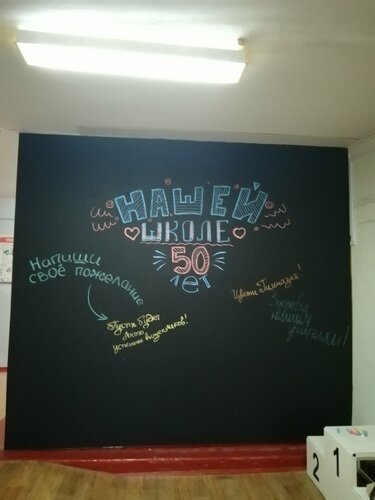 НАШЕЙ
ШКОЛЕ
50
ЛЕТ
Напиши
своё пожелание
Пусть будет
много
успешных выпускников!
Цвети Гимназия!
Здоровья
нашим
учителям!
2
1